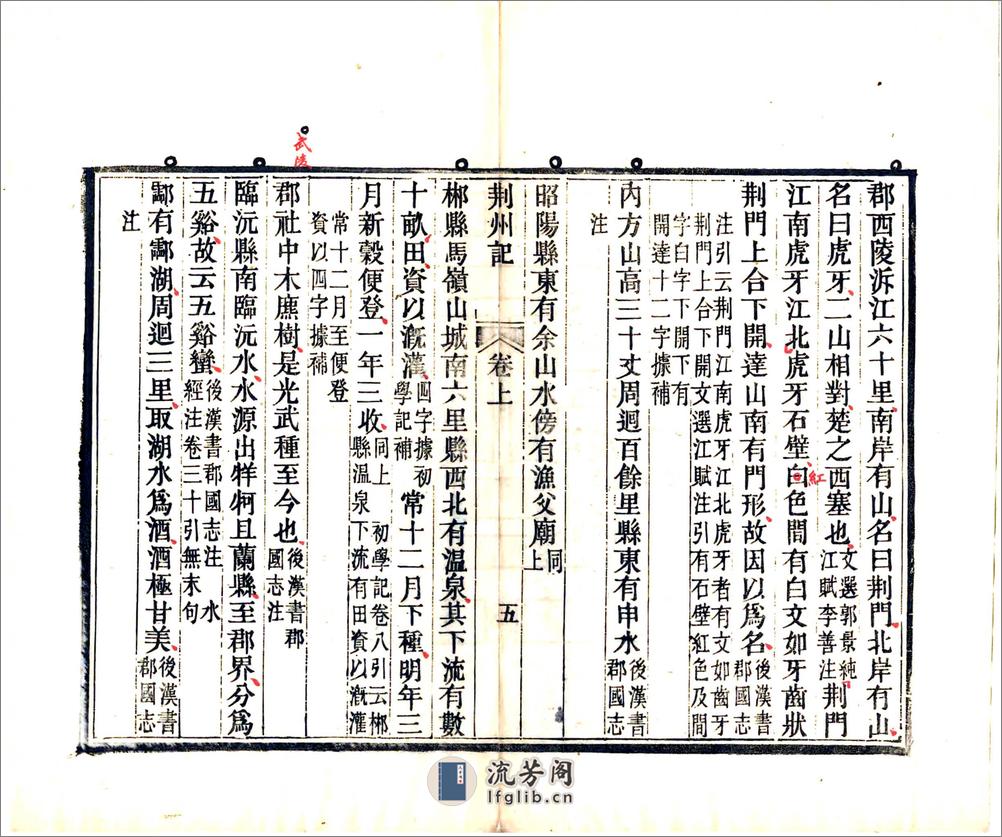 郡西陵泝江六十里南岸有山名曰荆門北岸有山
名曰虎牙二山相對楚之西塞也文選郭景純江賦李善注荆門
江南虎牙江北虎牙石壁白色間有白文如牙齒狀
紅
荆門上合下開達山南有門形故因以爲名後漢書郡國志
注引云荆門江南虎牙江北虎牙者有文如齒牙
荆門上合下開文選江賦注引有石壁紅色及間
字白字下開下有
開達十二字據補
內方山高三十丈周迴百餘里縣東有申水後漢書郡國志
注
昭陽縣東有余山水傍有漁父廟同上
荆州記
卷上
五
郴縣馬嶺山城南六里縣西北有温泉其下流有數
十畝田資以溉灌四字據初學記補常十二月下種明年三
月新穀便登一年三收同上 初學記卷八引云郴縣温泉下流有田資以溉灌
常十二月至便登
資以四字據補
武陵
郡社中木麃樹是光武種至今也後漢書郡國志注
臨沅縣南臨沅水水源出牂牁且蘭縣至郡界分爲
五谿故云五谿蠻後漢書郡國志注 水經注卷三十引無末句
酃有酃湖周迴三里取湖水爲酒酒極甘美後漢書郡國志
注
流芳阁
lfglib.cn